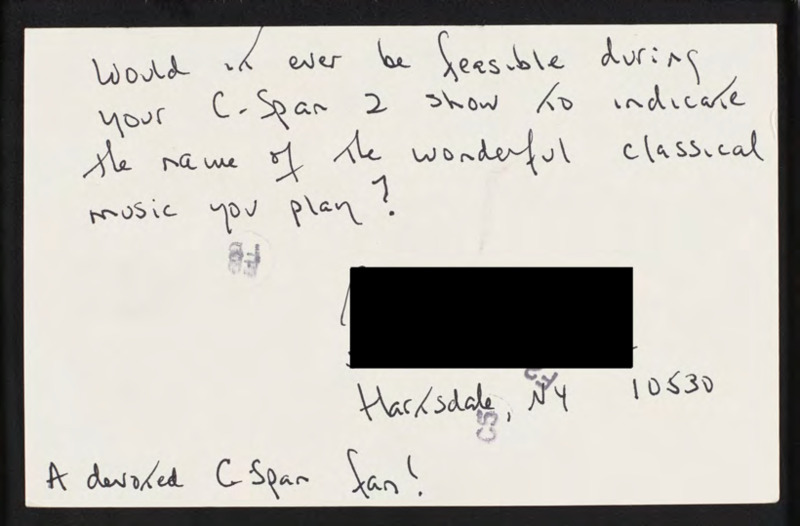 Would it ever be feasible during
your C-Span 2 show to indicate
the name of the wonderful classical
music you play?
Hartsdale, NY 10530
A devoted C-Span fan!